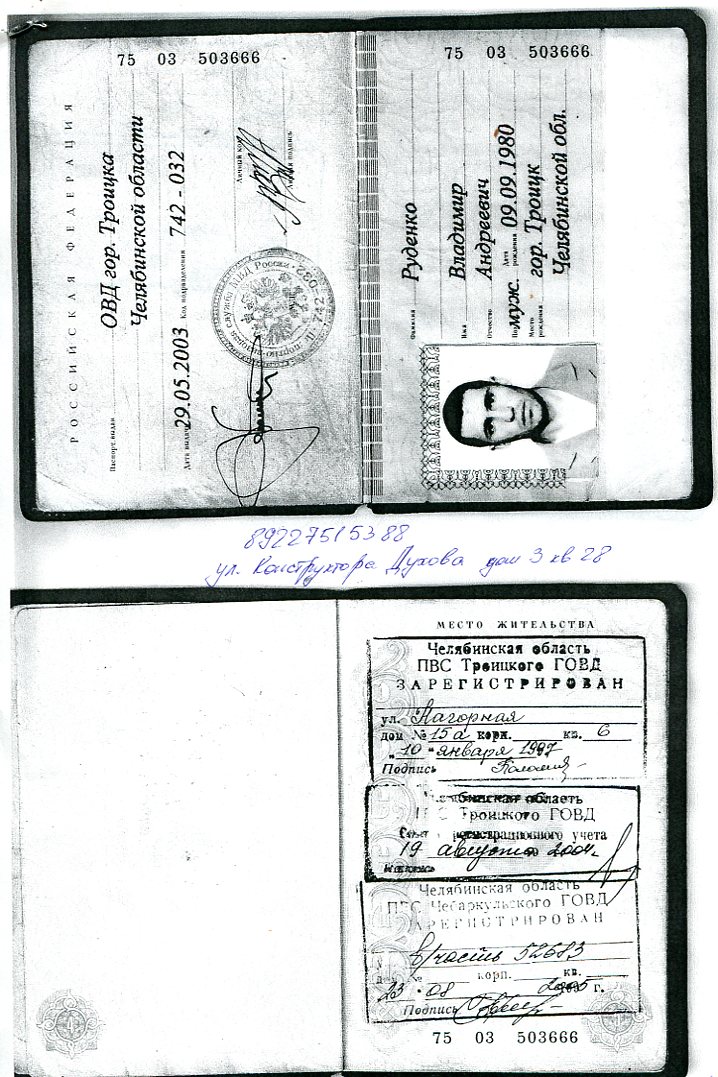 75 03 503666
РОССИЙСКАЯ ФЕДЕРАЦИЯ
Паспорт выдан
ОВД гор. Троицка
Челябинской области
Дата выдачи 29.05.2003 Код подразделения 742 - 032
Личный код
Личная подпись
75 03 503666
Фамилия Руденко
Имя Владимир
Отчество Андреевич
Пол муж. Дата рождения 09.09.1980
Место рождения гор. Троицк
Челябинской обл.
89227515388
ул. Конструктора Духова дом 3 кв 28
МЕСТО ЖИТЕЛЬСТВА
Челябинская область
ПВС Троицкого ГОВД
ЗАРЕГИСТРИРОВАН
ул. Нагорная
дом № 15а корп. кв. 6
"10" января 1997
Подпись
Челябинская область
ПВС Троицкого ГОВД
регистрационного учета
19 августа 2004г.
Подпись
Челябинская область
ПВС Чебаркульского ГОВД
ЗАРЕГИСТРИРОВАН
в/часть 52683
№ корп. кв.
23 · 08 2005 г.
Подпись
75 03 503666